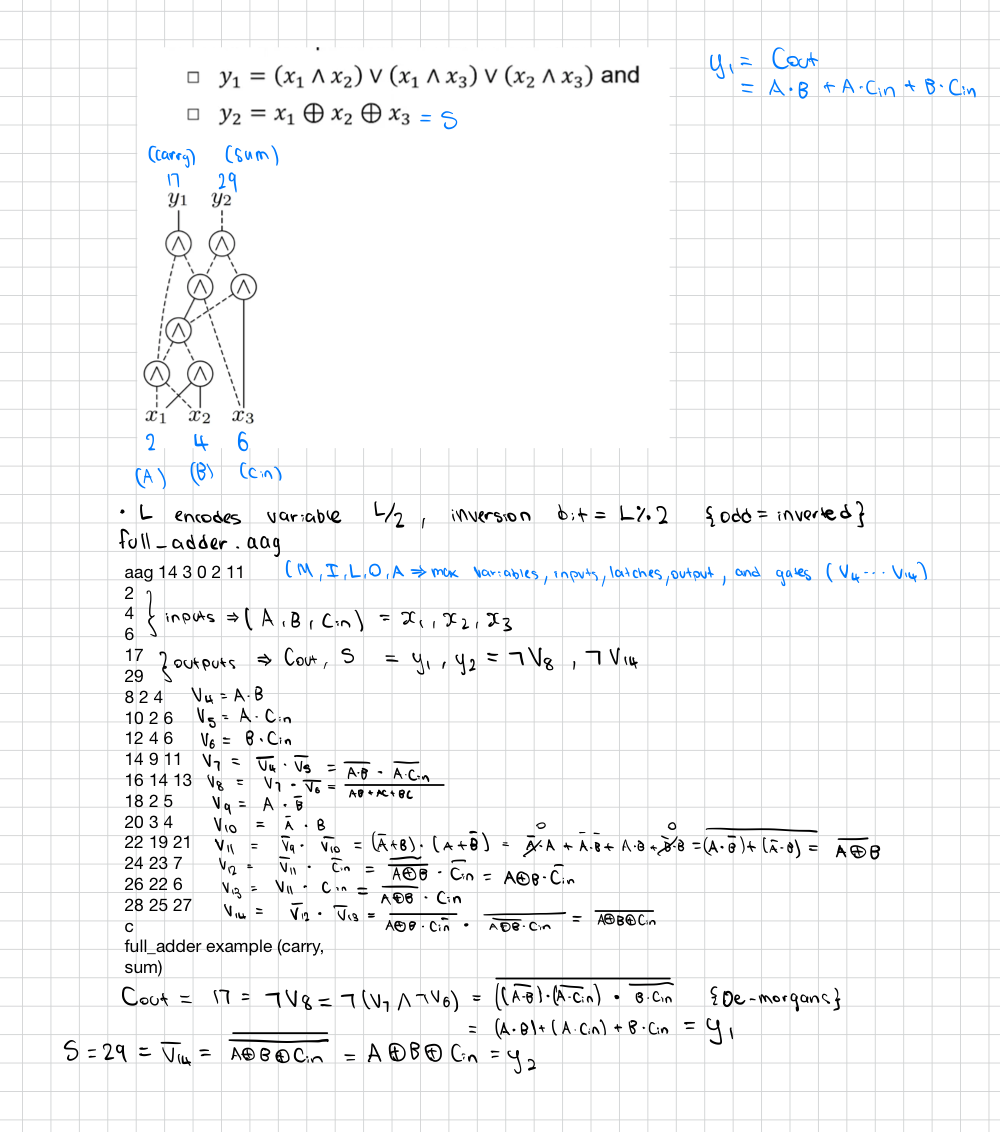 □ y₁ = (x₁ ∧ x₂) ∨ (x₁ ∧ x₃) ∨ (x₂ ∧ x₃) and
y₁ = Cout
= A·B + A·Cin + B·Cin
□ y₂ = x₁ ⊕ x₂ ⊕ x₃ = S
(carry) (sum)
17 29
y₁ y₂
∧ ∧
∧ ∧
∧
∧ ∧
x₁ x₂ x₃
2 4 6
(A) (B) (Cin)
• L encodes variable L/2, inversion bit = L%2 {odd = inverted}
full_adder.aag
aag 14 3 0 2 11 (M, I, L, O, A ⇒ max variables, inputs, latches, output, and gates (V₄ ··· V₁₄)
2
4 } inputs ⇒ (A, B, Cin) = x₁, x₂, x₃
6
17 } outputs ⇒ Cout, S = y₁, y₂ = ¬V₈, ¬V₁₄
29
8 2 4 V₄ = A·B
10 2 6 V₅ = A·Cin
12 4 6 V₆ = B·Cin
14 9 11 V₇ = V̅₄ · V̅₅ = \overline{A·B} · \overline{A·Cin}
16 14 13 V₈ = V₇ · V̅₆ = \overline{AB + AC + BC}
18 2 5 V₉ = A · B̅
20 3 4 V₁₀ = A̅ · B
22 19 21 V₁₁ = V̅₉ · V̅₁₀ = (A̅+B) · (A+B̅) = A̅·A + A̅·B̅ + A·B + B̅·B = \overline{(A·B̅)+(A̅·B)} = \overline{A⊕B}
24 23 7 V₁₂ = V̅₁₁ · C̅in = \overline{\overline{A⊕B}} · C̅in = A⊕B·C̅in
26 22 6 V₁₃ = V₁₁ · Cin = \overline{A⊕B} · Cin
28 25 27 V₁₄ = V̅₁₂ · V̅₁₃ = \overline{A⊕B · C̅in} · \overline{\overline{A⊕B}·Cin} = \overline{A⊕B⊕Cin}
c
full_adder example (carry,
sum)
Cout = 17 = ¬V₈ = ¬(V₇ ∧ ¬V₆) = \overline{((\overline{A·B})·(\overline{A·Cin}) · \overline{B·Cin}} {De-morgans}
= (A·B)+(A·Cin) + B·Cin = y₁
S = 29 = V̅₁₄ = \overline{\overline{A⊕B⊕Cin}} = A⊕B⊕Cin = y₂